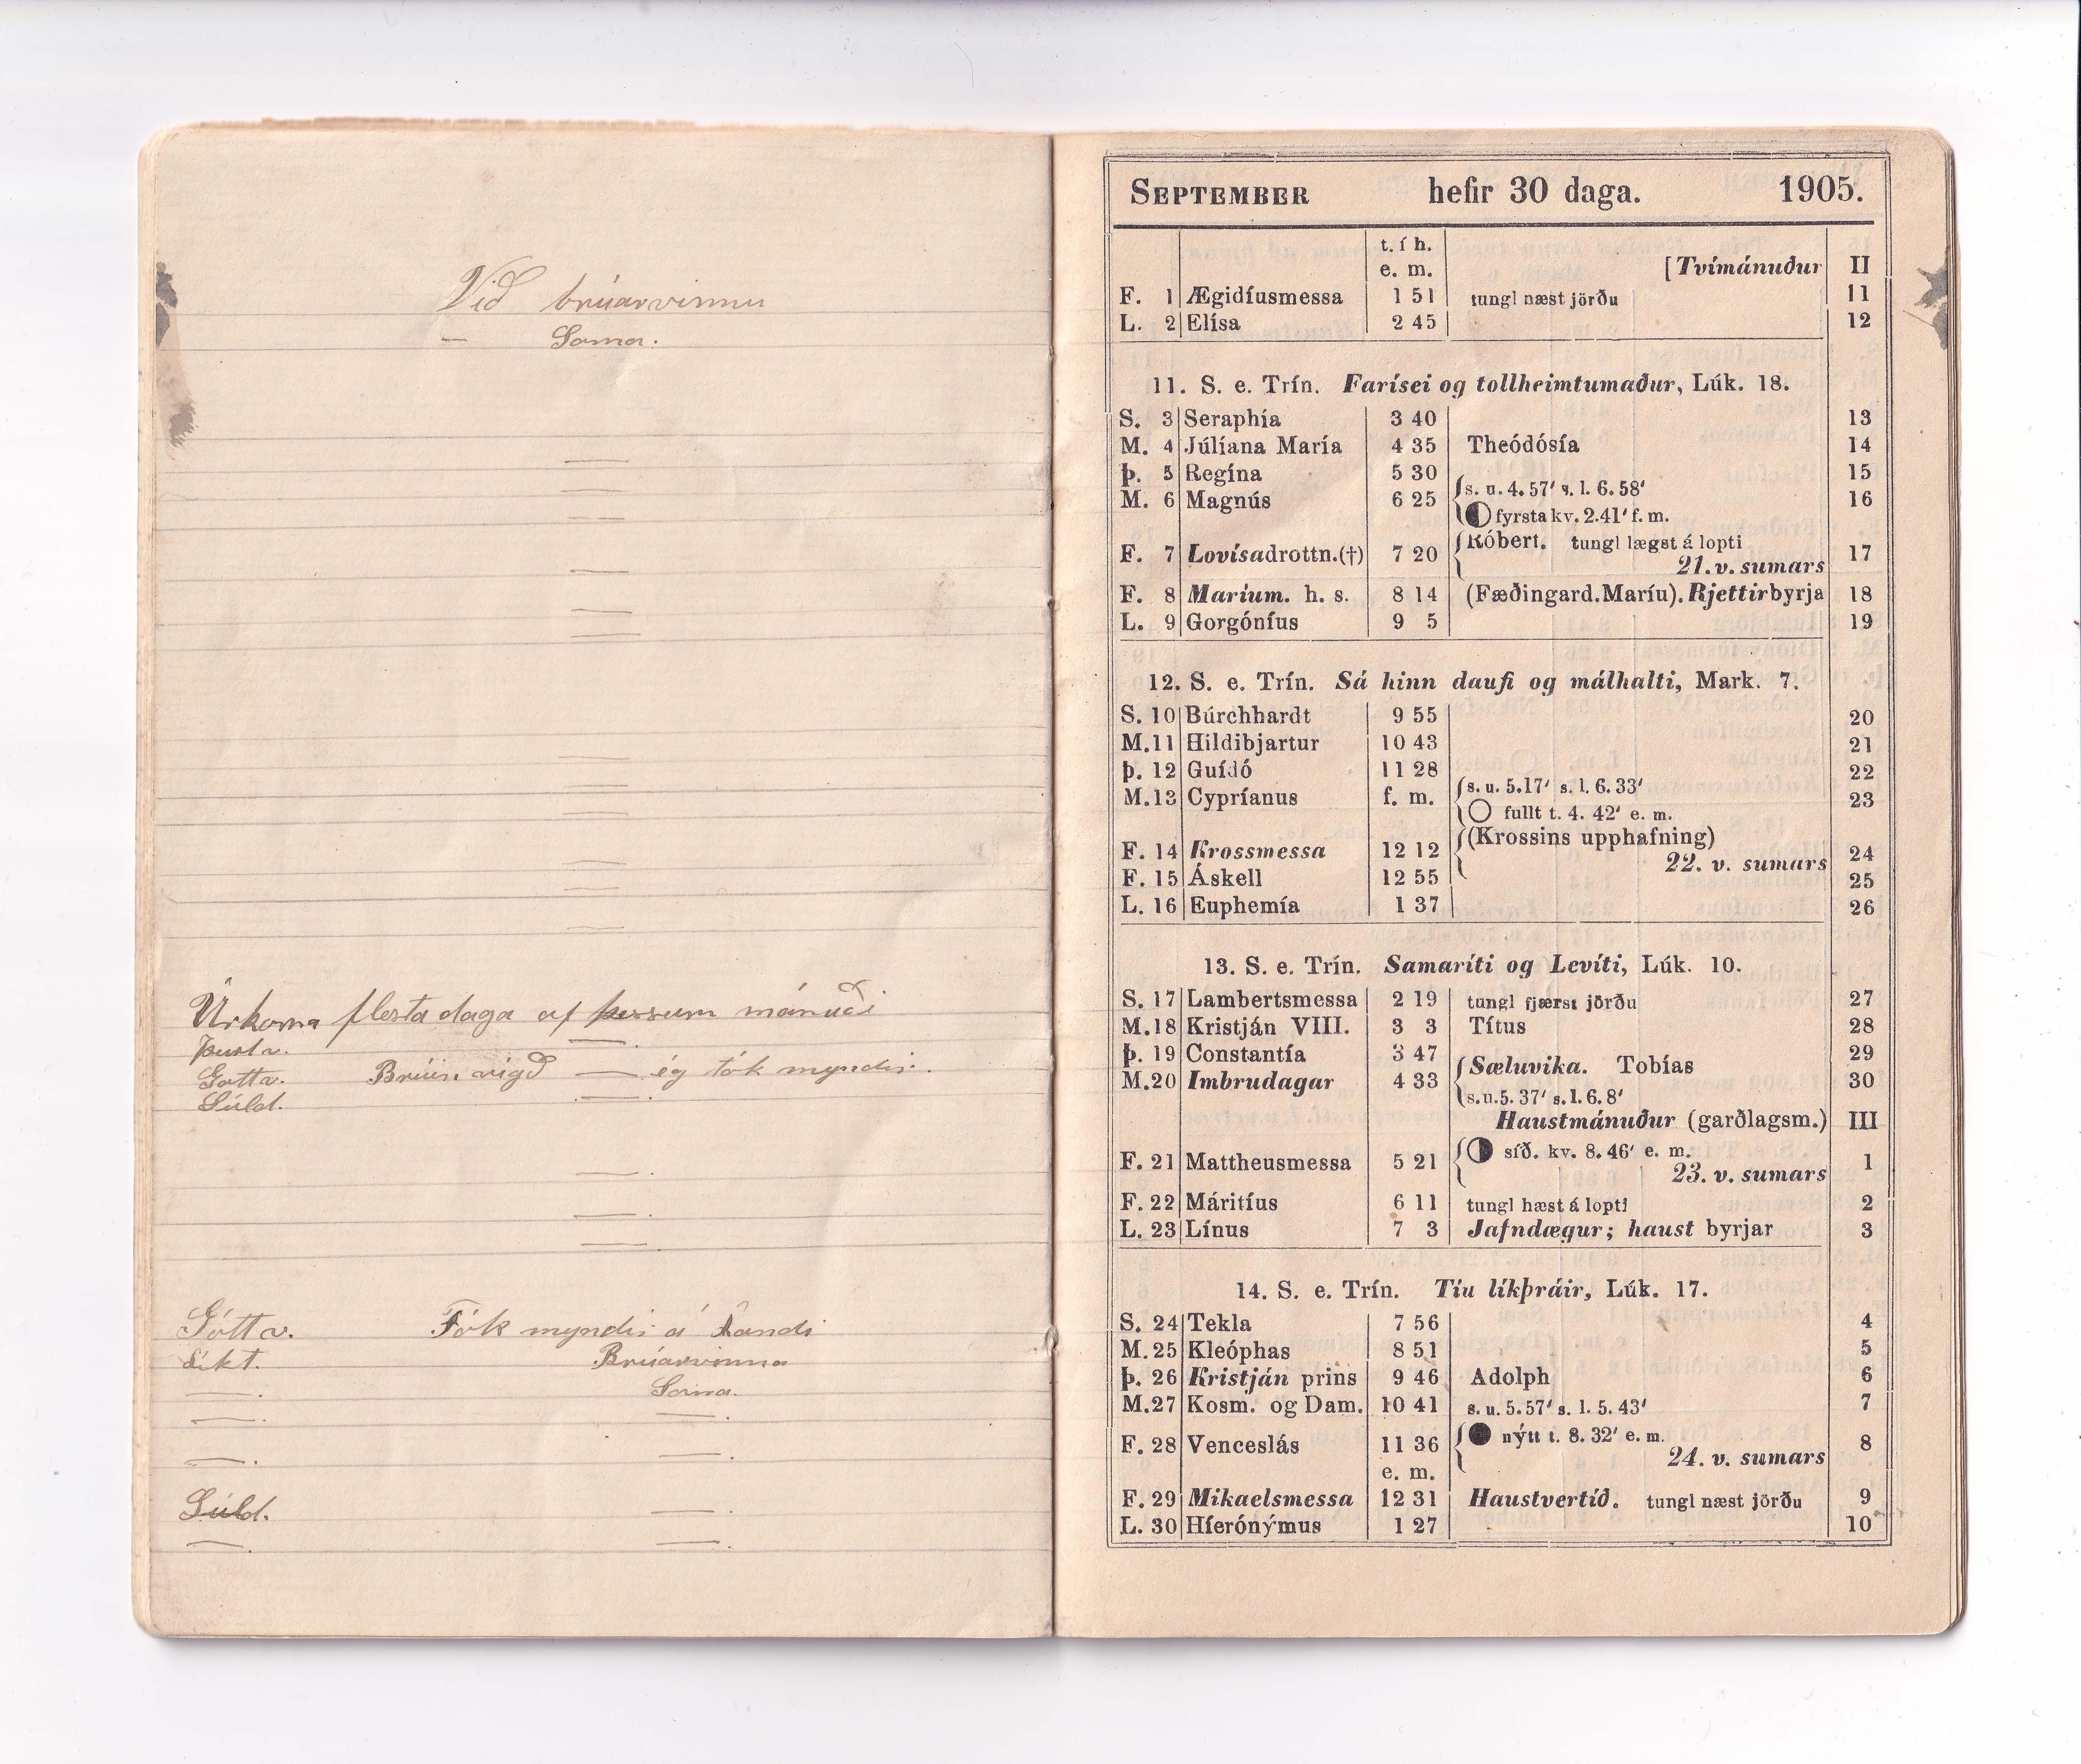 Við brúarvinnu
— Sama.
—
—
—
—
—
—
—
—
—
—
—
—
Úrkoma flesta daga af þessum mánuði
—
Gott v. Brúin vígð — ég tók myndir.
Súld. —.
—.
—.
—.
Gott v. Tók myndir á
Brúarvinna
—. Sama.
—. —.
—. —.
Súld. —.
—. —.
SEPTEMBER hefir 30 daga. 1905.
t. í h.
e. m. [Tvímánuður II
F. 1 Ægidíusmessa 1 51 tungl næst jörðu 11
L. 2 Elísa 2 45 12
11. S. e. Trín. Farísei og tollheimtumaður, Lúk. 18.
S. 3 Seraphía 3 40 13
M. 4 Júlíana María 4 35 Theódósía 14
Þ. 5 Regína 5 30 15
M. 6 Magnús 6 25 s. u. 4.57′ s. l. 6.58′ 16
fyrsta kv. 2.41′ f. m.
F. 7 Lovísa drottn.(†) 7 20 Róbert. tungl lægst á lopti 17
21. v. sumars
F. 8 Maríum. h. s. 8 14 (Fæðingard. Maríu). Rjettir byrja 18
L. 9 Gorgóníus 9 5 19
12. S. e. Trín. Sá hinn daufi og málhalti, Mark. 7.
S. 10 Búrchhardt 9 55 20
M. 11 Hildibjartur 10 43 21
Þ. 12 Guídó 11 28 22
M. 13 Cypríanus f. m. s. u. 5.17′ s. l. 6.33′ 23
fullt t. 4. 42′ e. m.
F. 14 Krossmessa 12 12 (Krossins upphafning) 24
22. v. sumars
F. 15 Áskell 12 55 25
L. 16 Euphemía 1 37 26
13. S. e. Trín. Samaríti og Levíti, Lúk. 10.
S. 17 Lambertsmessa 2 19 tungl fjærst jörðu 27
M. 18 Kristján VIII. 3 3 Títus 28
Þ. 19 Constantía 3 47 29
M. 20 Imbrudagar 4 33 Sæluvika. Tobías 30
s. u. 5. 37′ s. l. 6. 8′
Haustmánuður (garðlagsm.) III
F. 21 Mattheusmessa 5 21 síð. kv. 8. 46′ e. m. 1
23. v. sumars
F. 22 Máritíus 6 11 tungl hæst á lopti 2
L. 23 Línus 7 3 Jafndægur; haust byrjar 3
14. S. e. Trín. Tíu líkþráir, Lúk. 17.
S. 24 Tekla 7 56 4
M. 25 Kleóphas 8 51 5
Þ. 26 Kristján prins 9 46 Adolph 6
M. 27 Kosm. og Dam. 10 41 s. u. 5. 57′ s. l. 5. 43′ 7
F. 28 Venceslás 11 36 nýtt t. 8. 32′ e. m. 8
e. m. 24. v. sumars
F. 29 Mikaelsmessa 12 31 Haustvertíð. tungl næst jörðu 9
L. 30 Híerónýmus 1 27 10